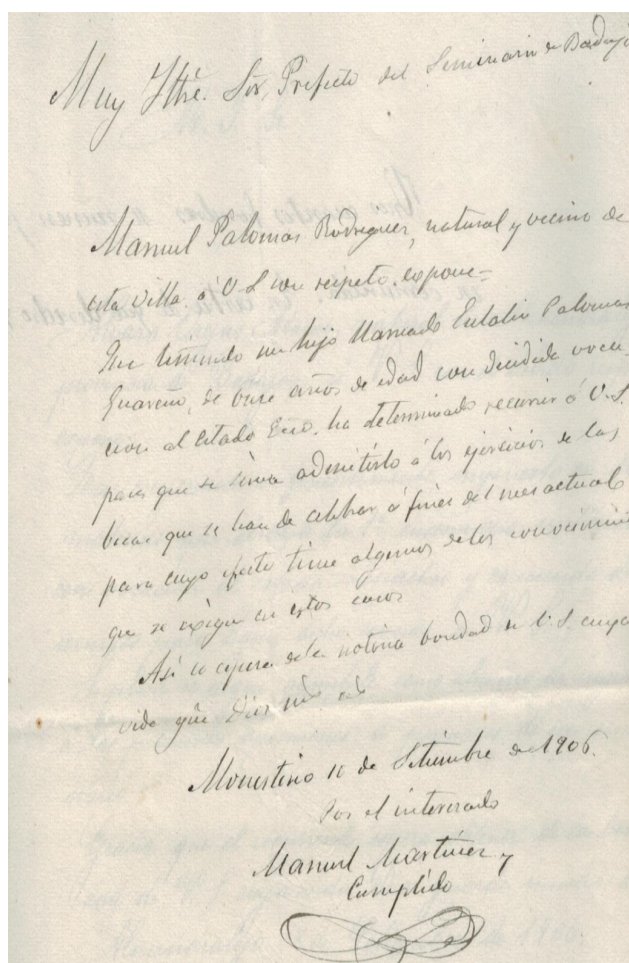 Muy Iltré. Sor. Prefecto del Seminario de Badaj
Manuel Palomas Rodriguez, natural y vecino de
esta villa á V.S con respeto expone=
Que teniendo un hijo llamado Eulalio Palomas
Guareno, de once años de edad con decidida voca-
cion al Estado Ecco. ha determinado recurrir á V.S.
para que se sirva admitirlo á los ejercicios de las
becas que se han de celebrar á fines del mes actual
para cuyo efecto tiene algunos de los conocimien
que se exigen en estos casos
Asi lo espera de la notoria bondad de V.S. cuya
vida gûe Dios ms. as
Monesterio 11 de Setiembre de 1906.
Por el interesado
Manuel Martinez y
Cumplido